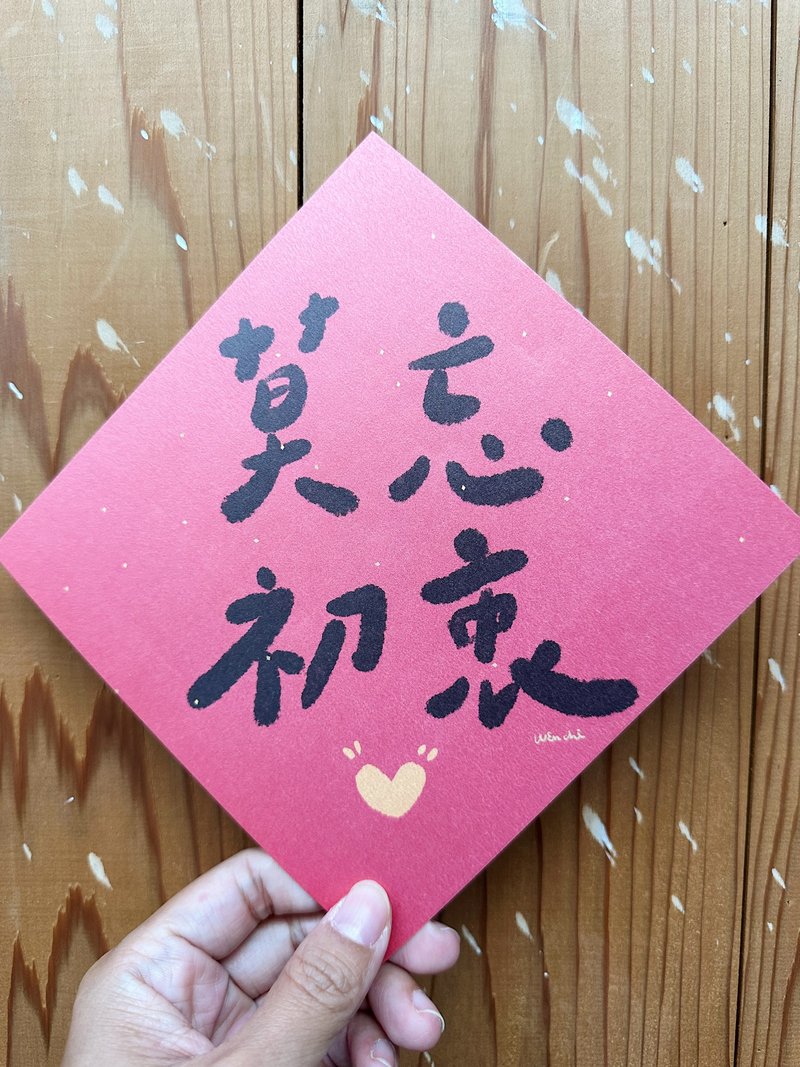 莫忘
初衷
Wen chi